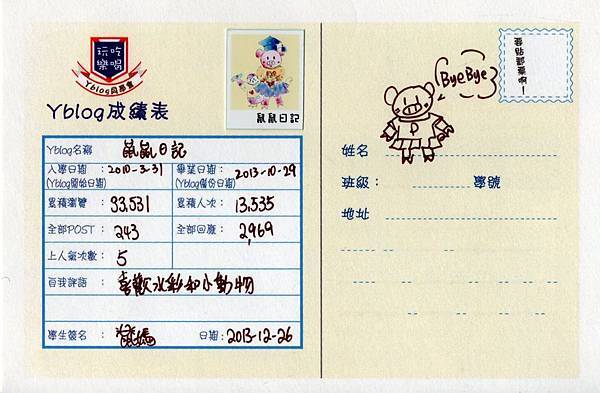 玩吃
樂喝
Yblog同學會
Yblog成績表
鼠鼠日記
Yblog名稱 : 鼠鼠日記
入學日期 : 2010-3-31
(Yblog開始日期)
畢業日期 : 2013-10-29
(Yblog備份日期)
累積瀏覽 : 33,531
累積人次 : 13,535
全部POST : 243
全部回應 : 2,969
上人氣次數 : 5
自我評語 : 喜歡水彩和小動物
學生簽名 :
日期 : 2013-12-26
ByeBye
P
姓名
班級 :
學號
地址